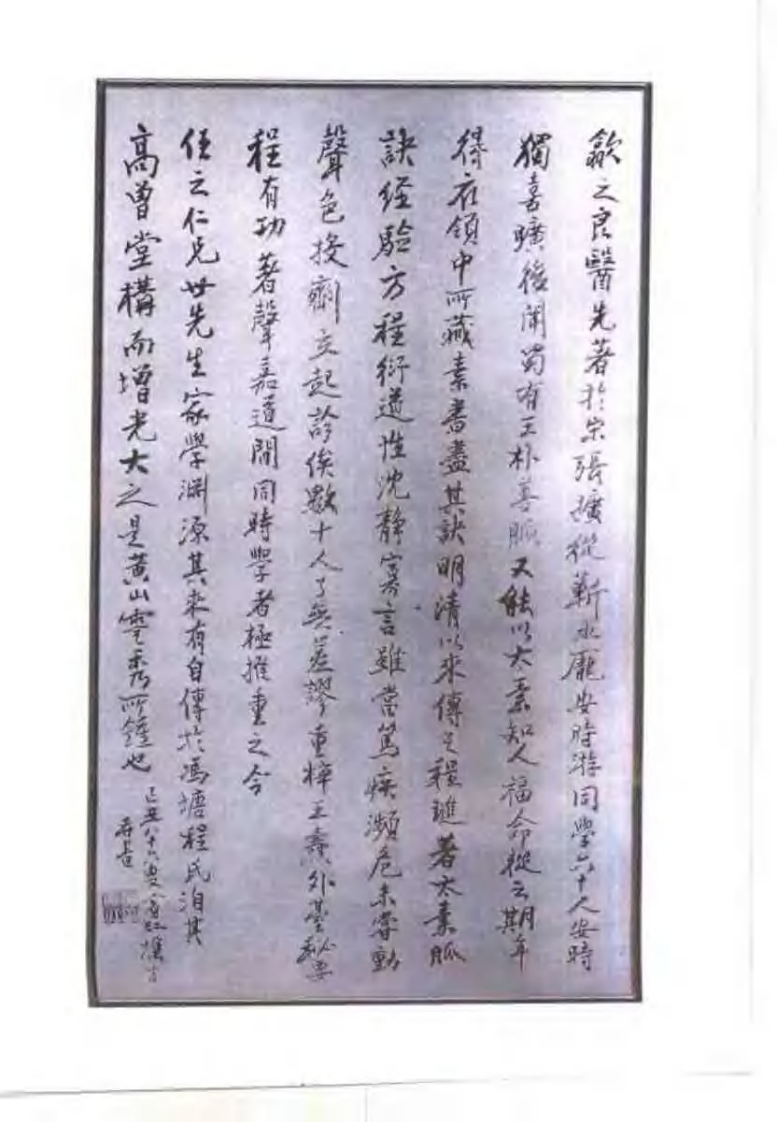 歙之良醫先著於宋張擴從蘄水龐安時游同學六十人安時
獨喜擴後聞蜀有王朴善脈又能以太素知人福命從之期年
得衣領中所藏素書盡其訣明清以來傳之程璡著太素脈
訣經驗方程衍道性沈靜寡言雖當篤疾瀕危未嘗動
聲色投劑立起診俟數十人了無差謬重梓王燾外臺秘要
程有功著聲嘉道間同時學者極推重之今
任之仁兄世先生家學淵源其來有自傳於馮塘程氏洎其
高曾堂構而增光大之是黃山靈秀所鍾也
己丑八十六叟黃賓虹撰書